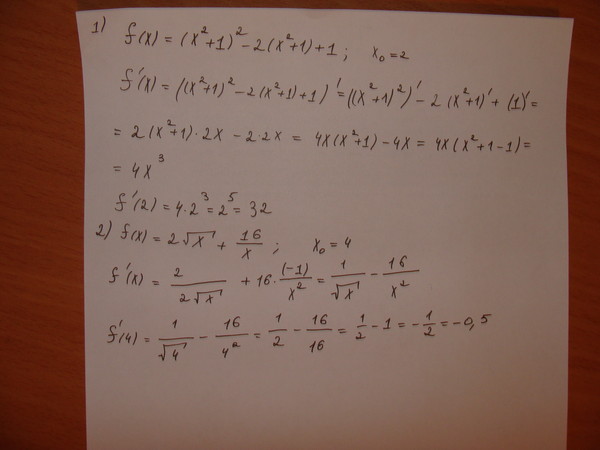 1) f(x) = (x²+1)² - 2(x²+1)+1 ; x₀ = 2
f'(x) = ((x²+1)² - 2(x²+1)+1)' = ((x²+1)²)' - 2(x²+1)' + (1)' =
= 2(x²+1)·2x - 2·2x = 4x(x²+1) - 4x = 4x(x²+1-1) =
= 4x³
f'(2) = 4·2³ = 2⁵ = 32
2) f(x) = 2√x + 16/x ; x₀ = 4
f'(x) = 2/(2√x) + 16·(-1)/x² = 1/√x - 16/x²
f'(4) = 1/√4 - 16/4² = 1/2 - 16/16 = 1/2 - 1 = -1/2 = -0,5